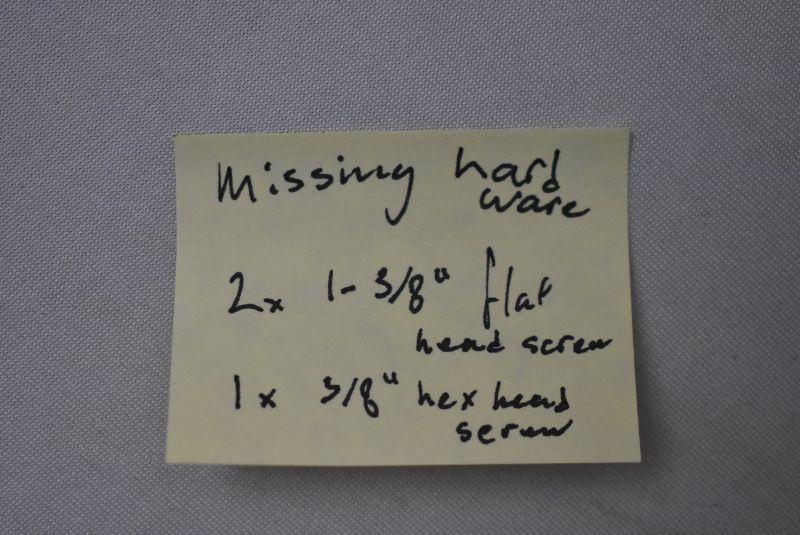 Missing hard
ware
2x 1-3/8" flat
head screw
1x 3/8" hex head
screw